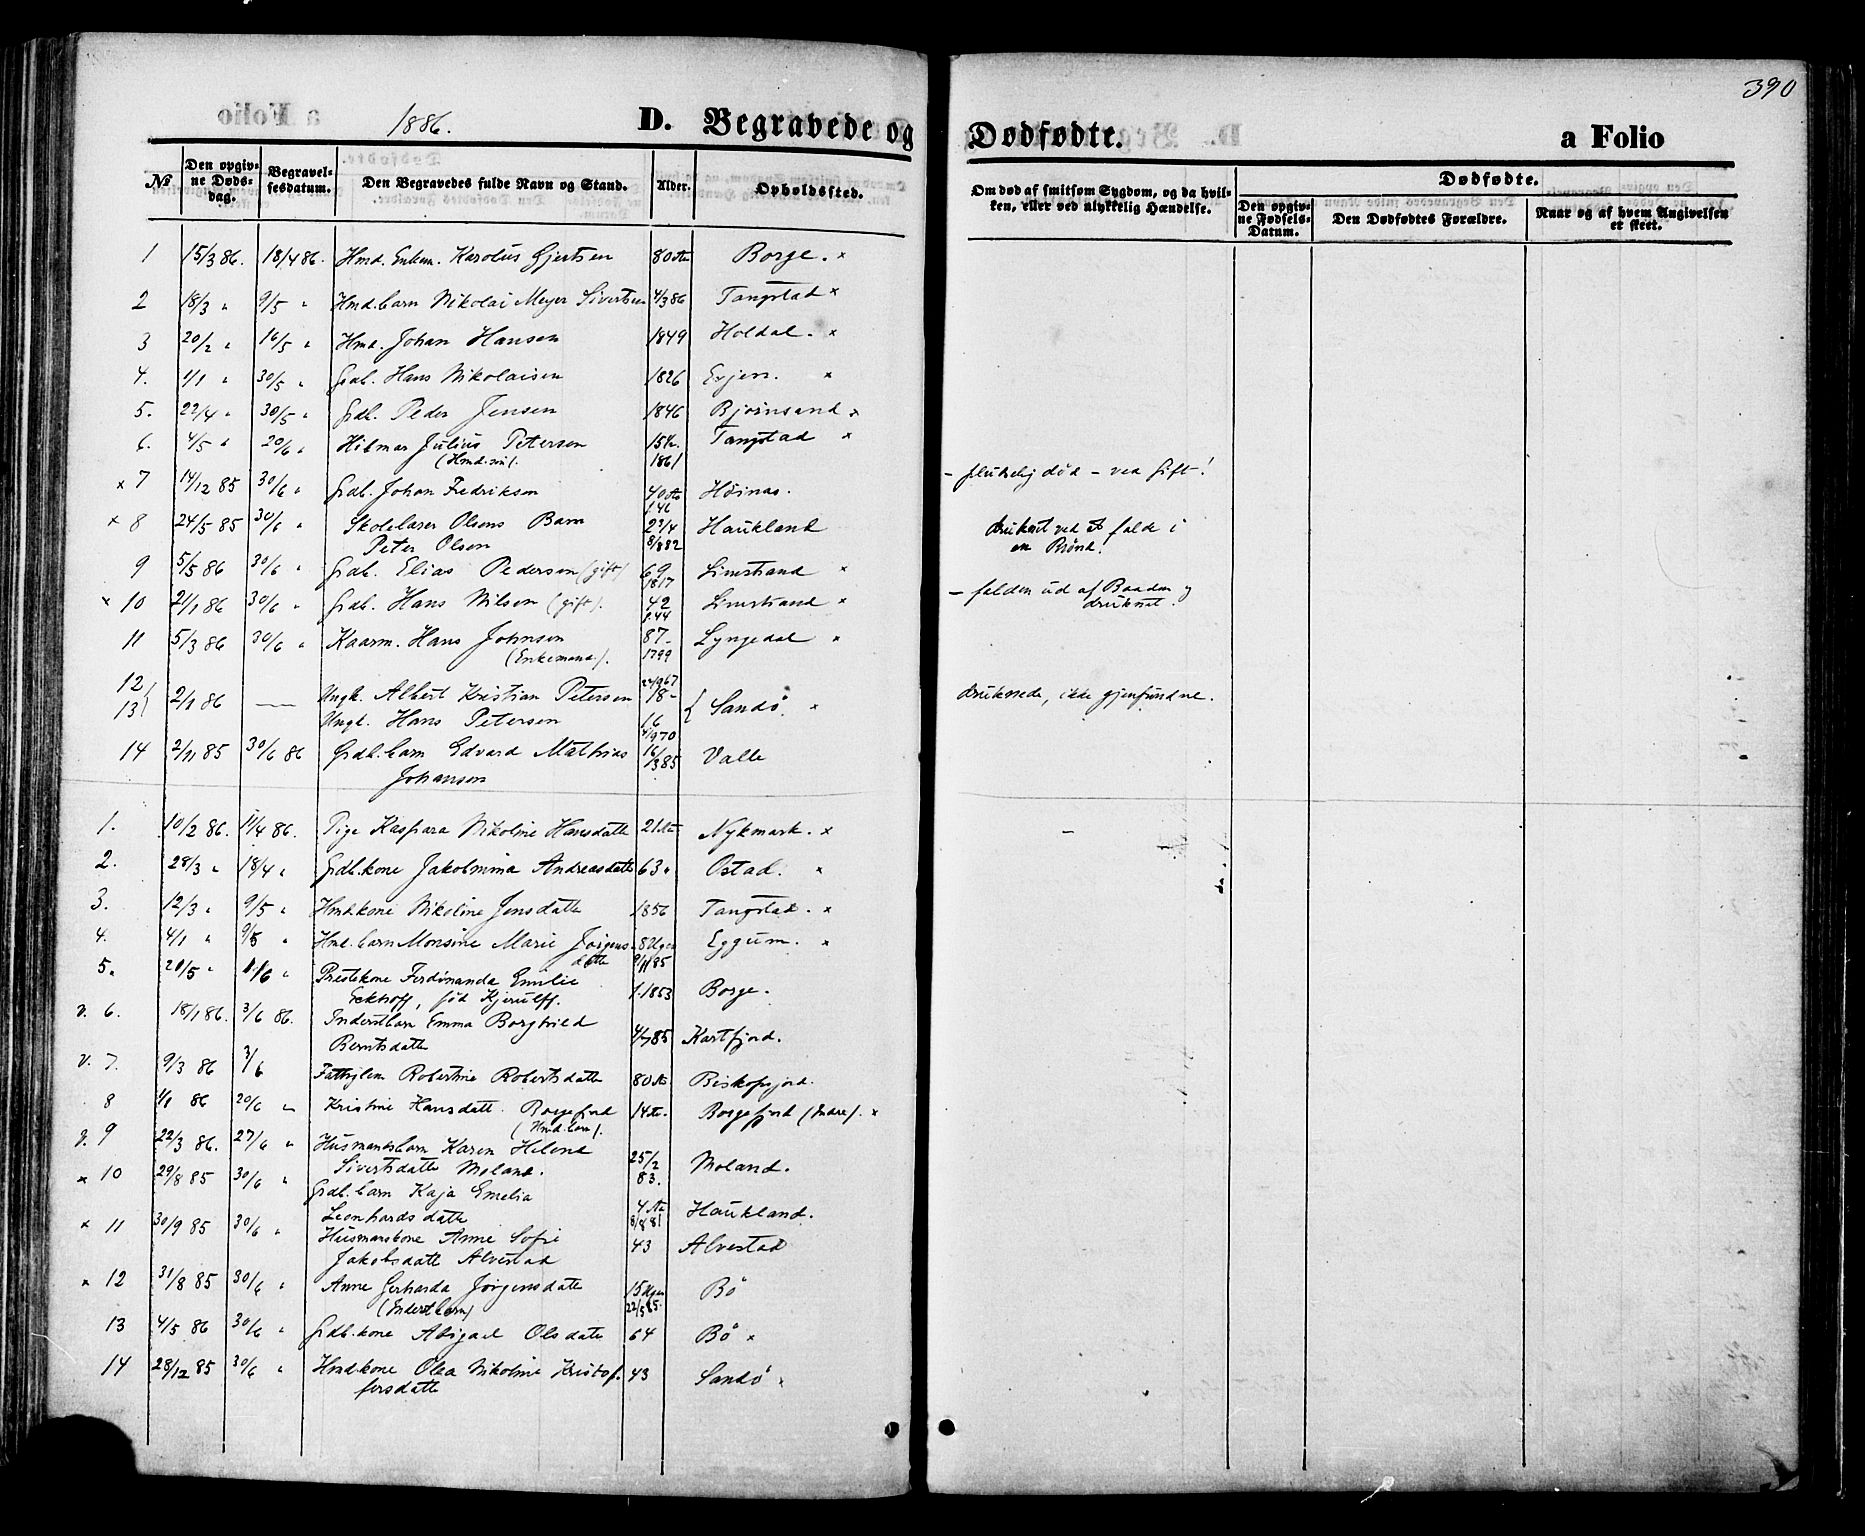 390
1886.
D. Begravede og Dødfødte. a Folio
№
Den opgivne Dødsdag.
Begravelsesdatum.
Den Begravedes fulde Navn og Stand.
Alder.
Opholdssted.
Om død af smitsom Sygdom, og da hvilken, eller ved ulykkelig Hændelse.
Dødfødte.
Den opgivne Fødsels-Datum.
Den Dødfødtes Forældre.
Naar og af hvem Angivelsen er skeet.
1 15/3 86. 18/4 86. Hmd. Enkem. Karolus Gjertsen 80 Borge. ×
2 18/3 " 9/5 " Hmd.barn Nikolai Meyer Sivertsen 4/3 86 Tangstad ×
3 20/2 " 16/5 " Hmd. Johan Hansen 1849 Holdal. ×
4. 1/1 " 30/5 " Gdb. Hans Nikolaisen 1826 Evjen. ×
5. 22/4 " 30/5 " Gdb. Peder Jensen 1846 Bjørnsand ×
6. 4/5 " 20/6 " Hilmar Julius Petersen 15 Tangstad ×
(Hmd.søn). 1861
× 7 14/12 85 30/6 " Gdb. Johan Fredriksen 40 Høinas. - plutselig død - ved Gift!
1.46
× 8 24/5 85 30/6 " Skolelærer Olsens Barn 2 3/4 Haukland druknet ved at falde i
Peter Olsen 8/8 82 en Brønd.
9 5/5 86 30/6 " Gdb. Elias Pedersen (gift) 69 Limstrand ×
1817
× 10 21/1 86 30/6 " Gdb. Hans Nilsen (gift). 42 Limstrand × - falden ud af Baaden og
1.44 druknet.
11 5/3 86 30/6 " Kaarm. Hans Johnsen 87- Lyngedal ×
(Enkemand). 1799
12 2/1 86 — Ungk. Albert Kristian Petersen 18- Sandø × druknede, ikke gjenfundne.
13 Ungk. Hans Petersen 16
14 2/11 85 30/6 86 Gdb.barn Edvard Mathias 16/3 85 Valle
Johansen
1. 10/2 86. 11/4 86. Pige Kaspara Nikoline Hansdatte 21 Nykmark. ×
2. 28/3 " 18/4 " Gdb.kone Jakobmina Andreasdatte 63 " Ostad. ×
3. 12/3 " 9/5 " Hmdkone Nikoline Jensdatte 1856 Tangstad. ×
4. 4/1 " 9/5 " Hmd.barn Monsine Marie Jørgens- 8 Uger Eggum. ×
datte 9/11 85
5. 20/5 " 1/6 " Prestekone Ferdinanda Emilie
Eckhoff, fød Kjerulff. 1.1853 Borge.
v. 6. 18/1 86. 3/6 86. Inderstbarn Emma Borghild
Berntsdatte 4/7 85 Kartfjord.
v. 7. 9/3 86 3/6 Fattiglem Robertine Robertsdatte 80 Biskopsjord.
8 1/1 86 20/6 " Kristine Hansdatt. Borgefjord 14 Borgefjord (Indre). ×
(Hmd.barn).
v. 9 22/3 86. 27/6 " Husmandsbarn Karen Helene
Sivertsdatte Moland. 25/2 83. Moland.
× 10 29/8 85 30/6 " Gdb.barn Kaja Emelia
Leonhardsdatte 4 Haukland.
8/8 81
× 11 30/9 85 30/6 " Husmanskone Anne Sofie 43 Alvestad
Jakobsdatte Alvestad
× 12 31/8 85 30/6 " Anne Gerharda Jørgensdatte 15 Uger Bø
(Inderstbarn) 22/5 85.
13 4/5 86 30/6 " Gdb.kone Abigael Olsdatte 64 Bø ×
14 28/12 85 30/6 " Hmdkone Olea Nikoline Kristof- 43 Sandø ×
fersdatte